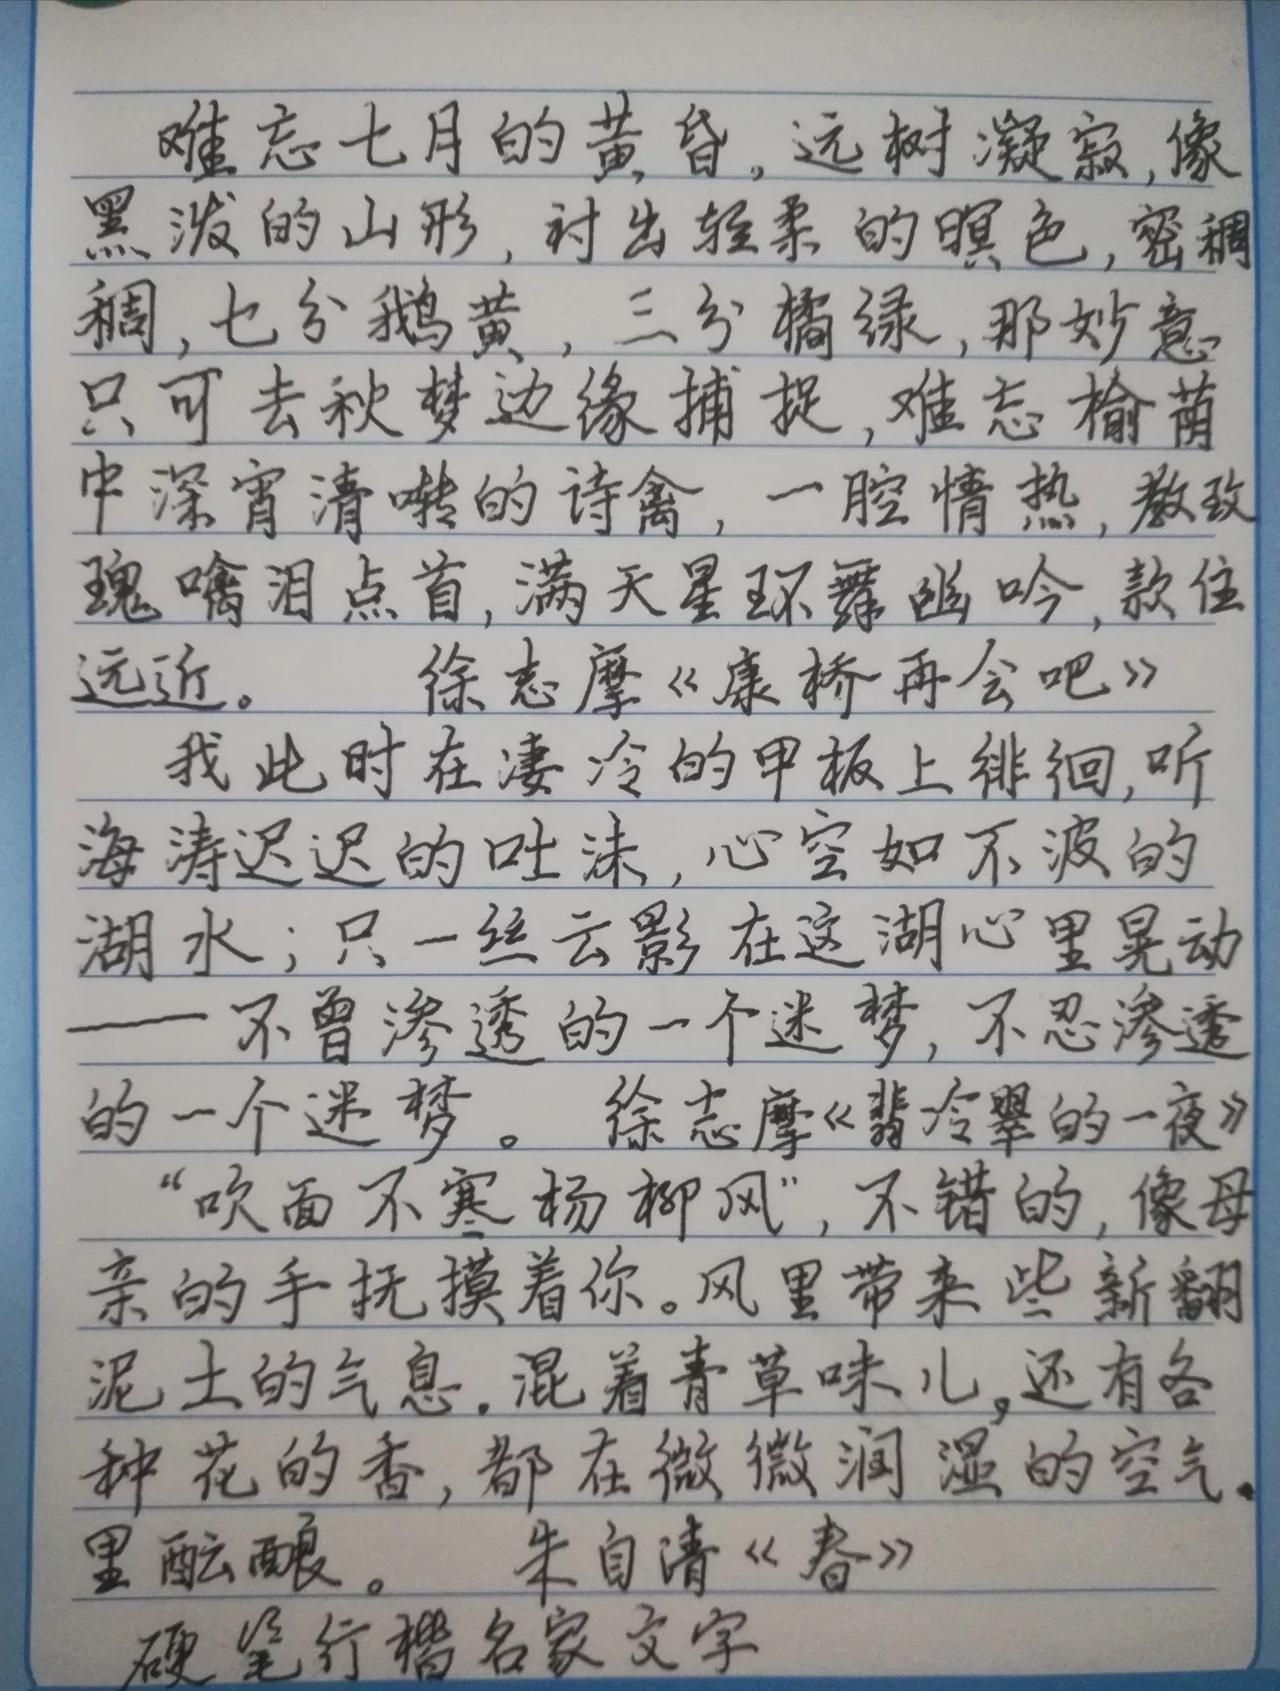 难忘七月的黄昏，远树凝寂，像
黑泼的山形，衬出轻柔的暝色，密稠
稠，七分鹅黄，三分橘绿，那妙意
只可去秋梦边缘捕捉，难忘榆荫
中深宵清啭的诗禽，一腔情热，教玫
瑰噙泪点首，满天星环舞幽吟，款住
远近。 徐志摩《康桥再会吧》
我此时在凄冷的甲板上徘徊，听
海涛迟迟的吐沫，心空如不波的
湖水；只一丝云影在这湖心里晃动
——不曾渗透的一个迷梦，不忍渗透
的一个迷梦。 徐志摩《翡冷翠的一夜》
“吹面不寒杨柳风”，不错的，像母
亲的手抚摸着你。风里带来些新翻
泥土的气息．混着青草味儿，还有各
种花的香，都在微微润湿的空气．
里酝酿。 朱自清《春》
硬笔行楷名家文字